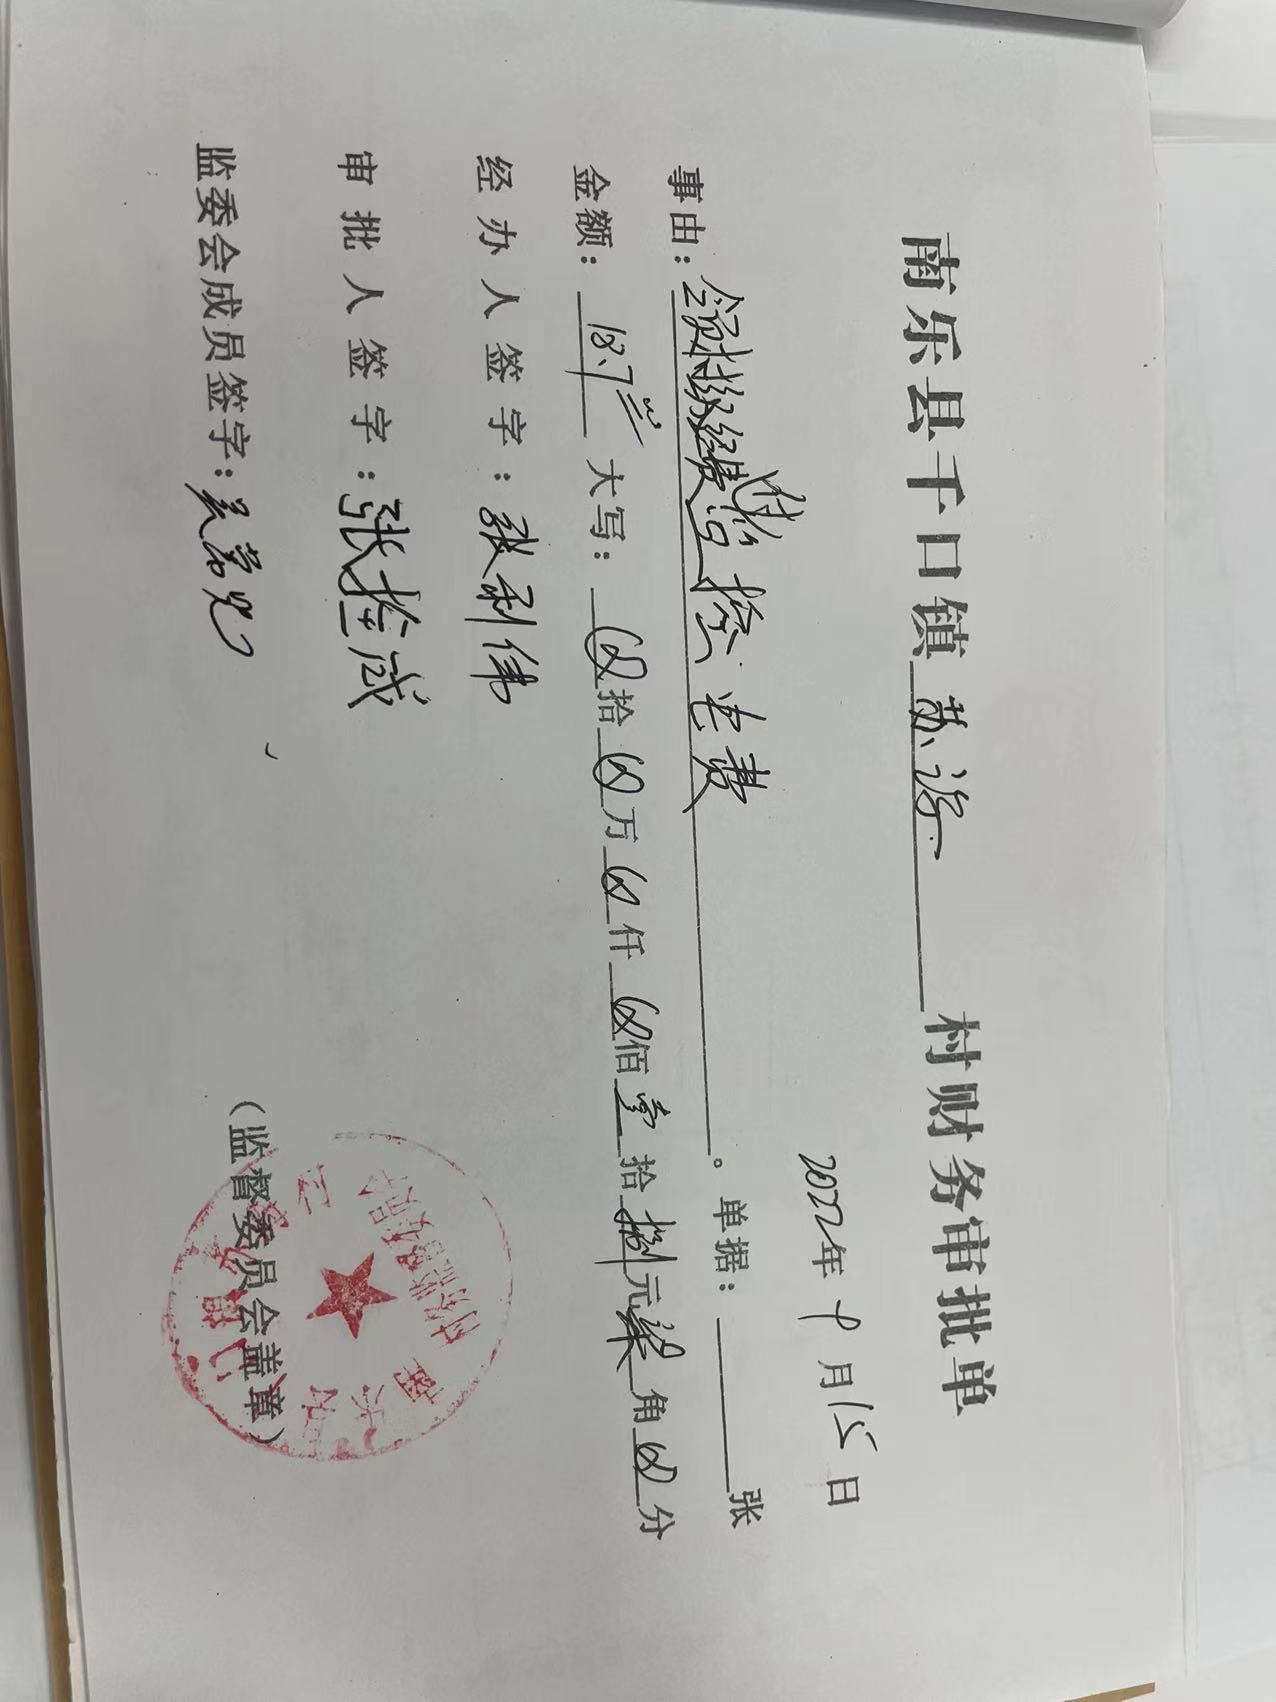 南乐县千口镇苏许村财务审批单
2022年9月15日
事由：领村级经费付监控电费。单据：张
金额：18.7元大写：⊗拾⊗万⊗仟⊗佰壹拾捌元柒角⊗分
经办人签字：张利伟
审批人签字：张拴成
监委会成员签字：
（监督委员会盖章）